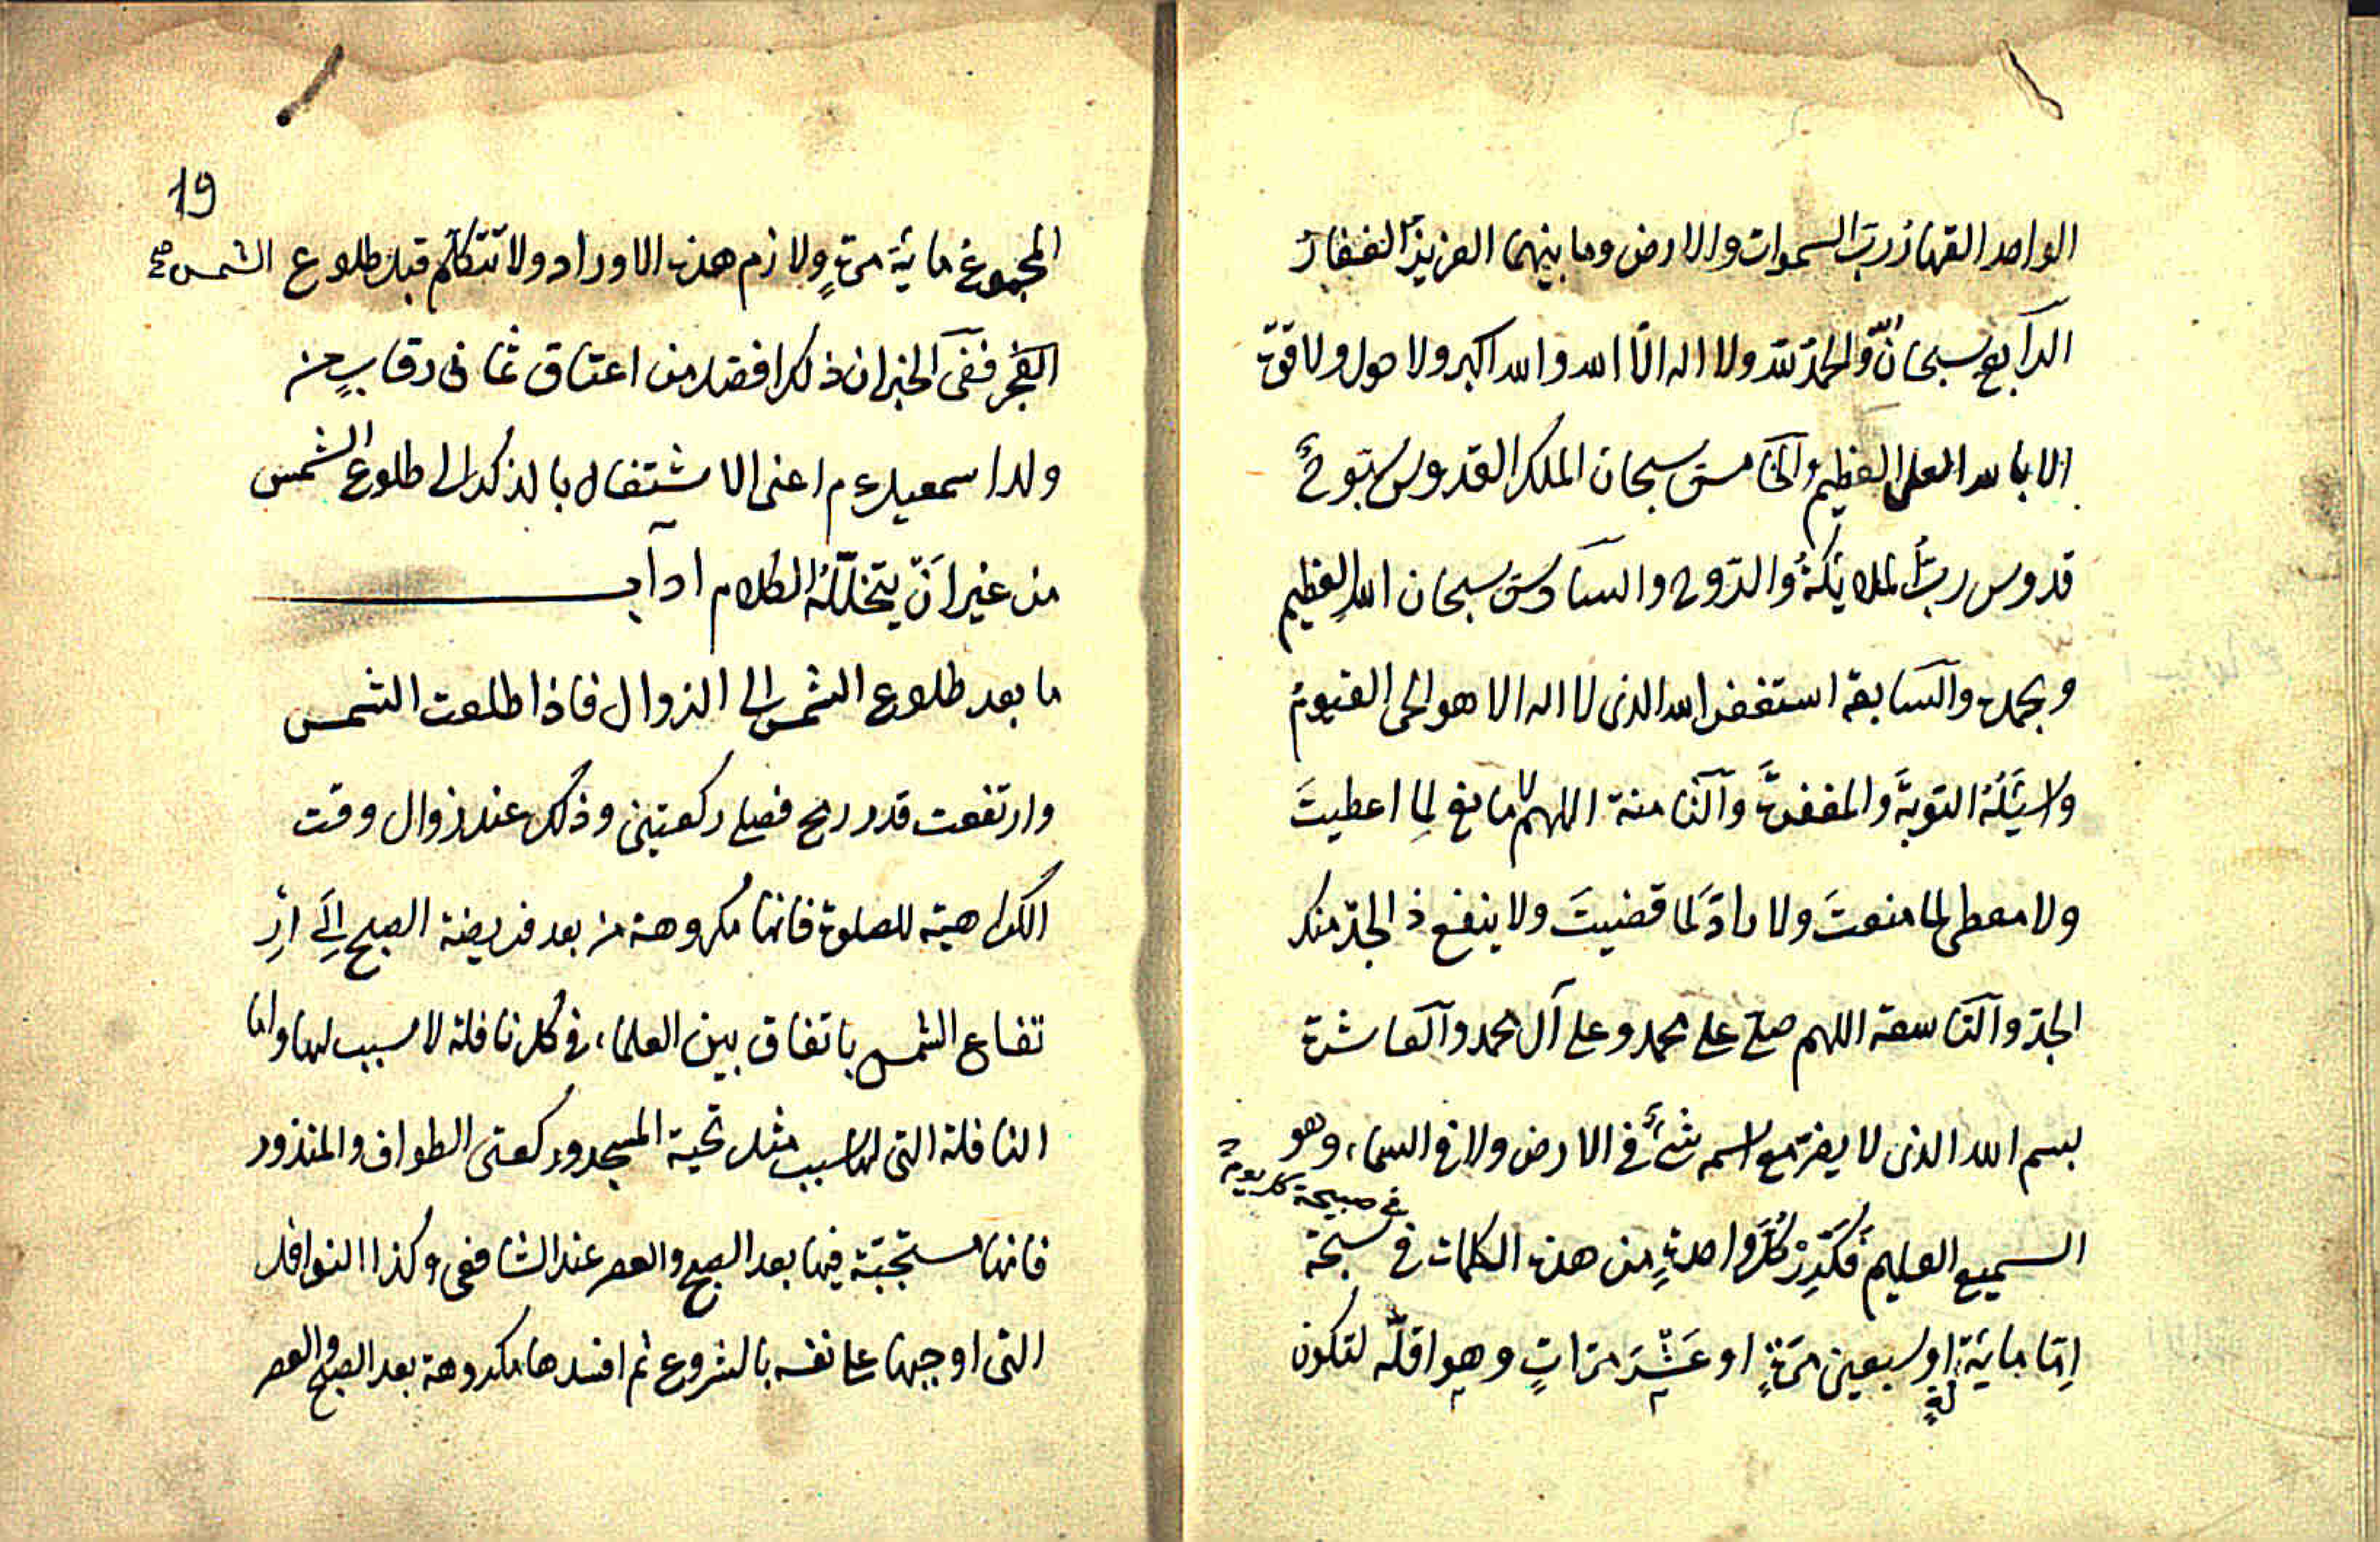 الواحد القهار رب السموات والارض وما بينهما العزيز الغفار
الرابع سبحان الله والحمد لله ولا اله الا الله والله اكبر ولا حول ولا قوة
الا بالله العلى العظيم والخامس سبحان الملك القدوس سبوح
قدوس رب الملايكة والروح والسادس سبحان الله العظيم
وبحمده والسابعة استغفر الله الذى لا اله الا هو الحى القيوم
واسئله التوبة والمغفرة والثامنة اللهم لا مانع لما اعطيت
ولا معطى لما منعت ولا رادّ لما قضيت ولا ينفع ذ الجدّ منك
الجدّ والتاسعة اللهم صلّ على محمد وعلى آل محمد والعاشرة
بسم الله الذى لا يضرّ مع اسمه شئ فى الارض ولا فى السماء وهو
فى صبيحة كل يوم
السميع العليم فكرّر كلّ واحدةٍ من هذه الكلمات فى سبحة
امّا ماية مرةٍ او سبعين مرّةٍ او عشر مرّاتٍ وهو اقلّه لتكون
19
المجموع ماية مرة ولازم هذه الاوراد ولا تتكلّم قبل طلوع الشمس صح
الفجر ففى الخبر ان ذلك افضل من اعتاق ثمانى رقابٍ من
ولد اسمعيل ع م اعنى الاشتغال بالذكر الى طلوع الشمس
من غير انّ يتخلّله الكلام اداب
ما بعد طلوع الشمس الى الزوال فاذا طلعت الشمس
وارتفعت قدر رمح فصل ركعتين وذلك عند زوال وقت
الكراهية للصلوة فانها مكروهة من بعد فريضة الصبح الى ار
تفاع الشمس باتفاق بين العلماء فى كل نافلة لا سبب لها واما
النافلة التى لها سبب مثل تحية المسجد وركعتى الطواف والمنذور
فانها مستحبّة فيها بعد الصبح والعصر عند الشافعى وكذا النوافل
التى اوجبها على نفسه بالشروع ثم افسدها مكروهة بعد الصبح والعصر